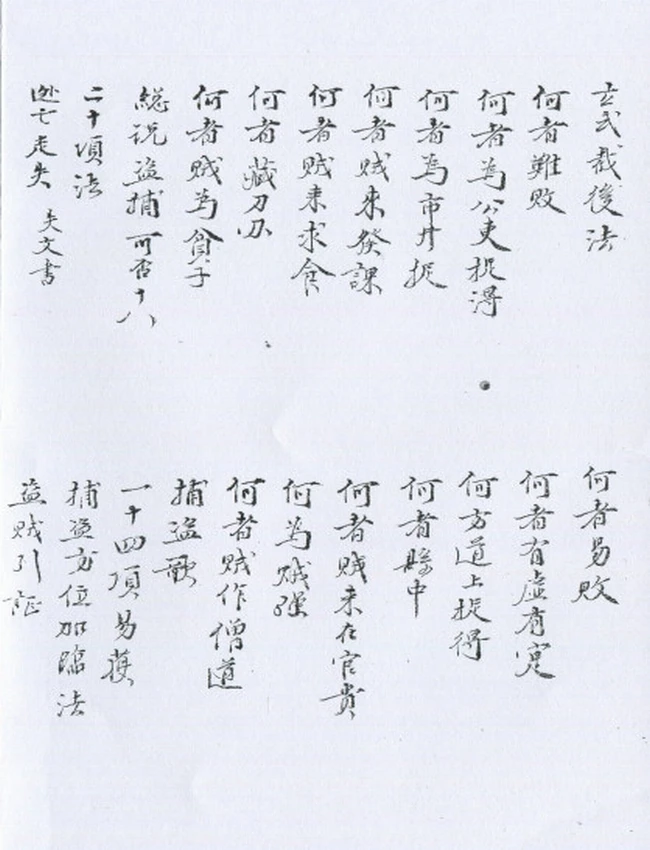 玄武裁後法
何者難敗
何者為公吏捉得
何者為市井捉
何者賊來發課
何者賊来求食
何者藏刀刃
何者賊為貧子
総説盗捕可否十八
二十項法
逃亡走失 失文書
何者易敗
何者有虛有寔
何方道上捉得
何者縣中
何者賊来在官貴
何為賊強
何者賊作僧道
捕盗歌
一十四項易獲
捕盗方位加臨法
盗賊引証